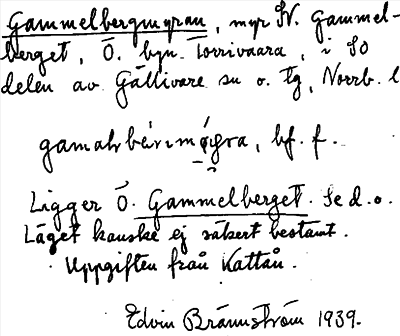 Gammelbergmyran, myr SV. Gammel-
berget, Ö. byn Torrivaara, i SO
delen av Gällivare sn o. tg, Norrb. l
bf. f.
Ligger Ö. Gammelberget. Se d.o.
Läget kanske ej säkert bestämt.
Uppgiften från Kattån.
Edvin Brännström 1939.